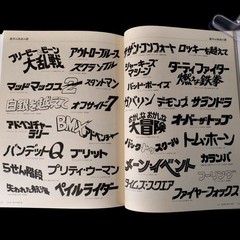 フリービーとビーン
大乱戦
アウトローブルース
スクランブル
マッドマックス2
スタントマン
白銀を越えて
オフサイド7
アドベンチャー
ラリー
BMX
アドベンチャー
バンデットQ
ブリット
5せん階段
プリティ・ウーマン
失われた航海
ペイルライダー
ロッキーを越えて
ジャーキーズ
マシーン
ダーティファイター
燃えよ鉄拳
バッド・ボーイズ
グバリン
デモンズ
サランドラ
おかしなおかしな
大冒険
オーバー・ザ・トップ
トム・ホーン
メーン・イベント
カランバ
タイムズ・スクエア
ファイヤーフォックス